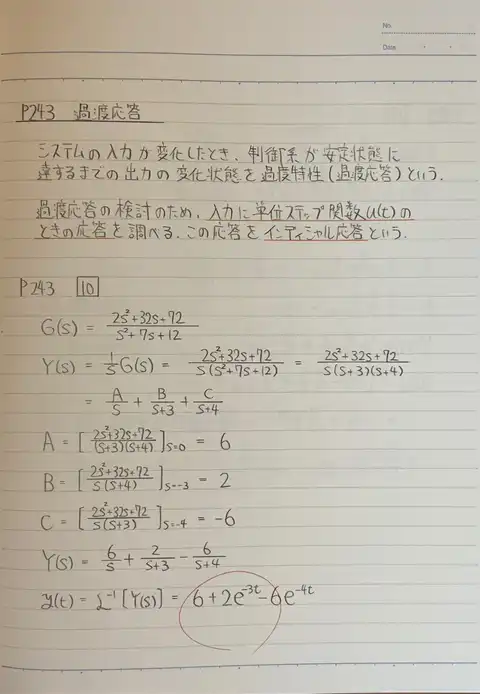 No.
Date
P243 過渡応答
システムの入力が変化したとき、制御系が安定状態に
達するまでの出力の変化状態を過度特性(過渡応答)という。
過渡応答の検討のため、入力に単位ステップ関数u(t)の
ときの応答を調べる。この応答をインディシャル応答という。
P243 10
G(s) = (2s²+32s+72)/(s²+7s+12)
Y(s) = (1/s)G(s) = (2s²+32s+72)/(s(s²+7s+12)) = (2s²+32s+72)/(s(s+3)(s+4))
= A/s + B/(s+3) + C/(s+4)
A = [(2s²+32s+72)/((s+3)(s+4))]s=0 = 6
B = [(2s²+32s+72)/(s(s+4))]s=-3 = 2
C = [(2s²+32s+72)/(s(s+3))]s=-4 = -6
Y(s) = 6/s + 2/(s+3) - 6/(s+4)
y(t) = ℒ⁻¹[Y(s)] = 6+2e^{-3t}-6e^{-4t}